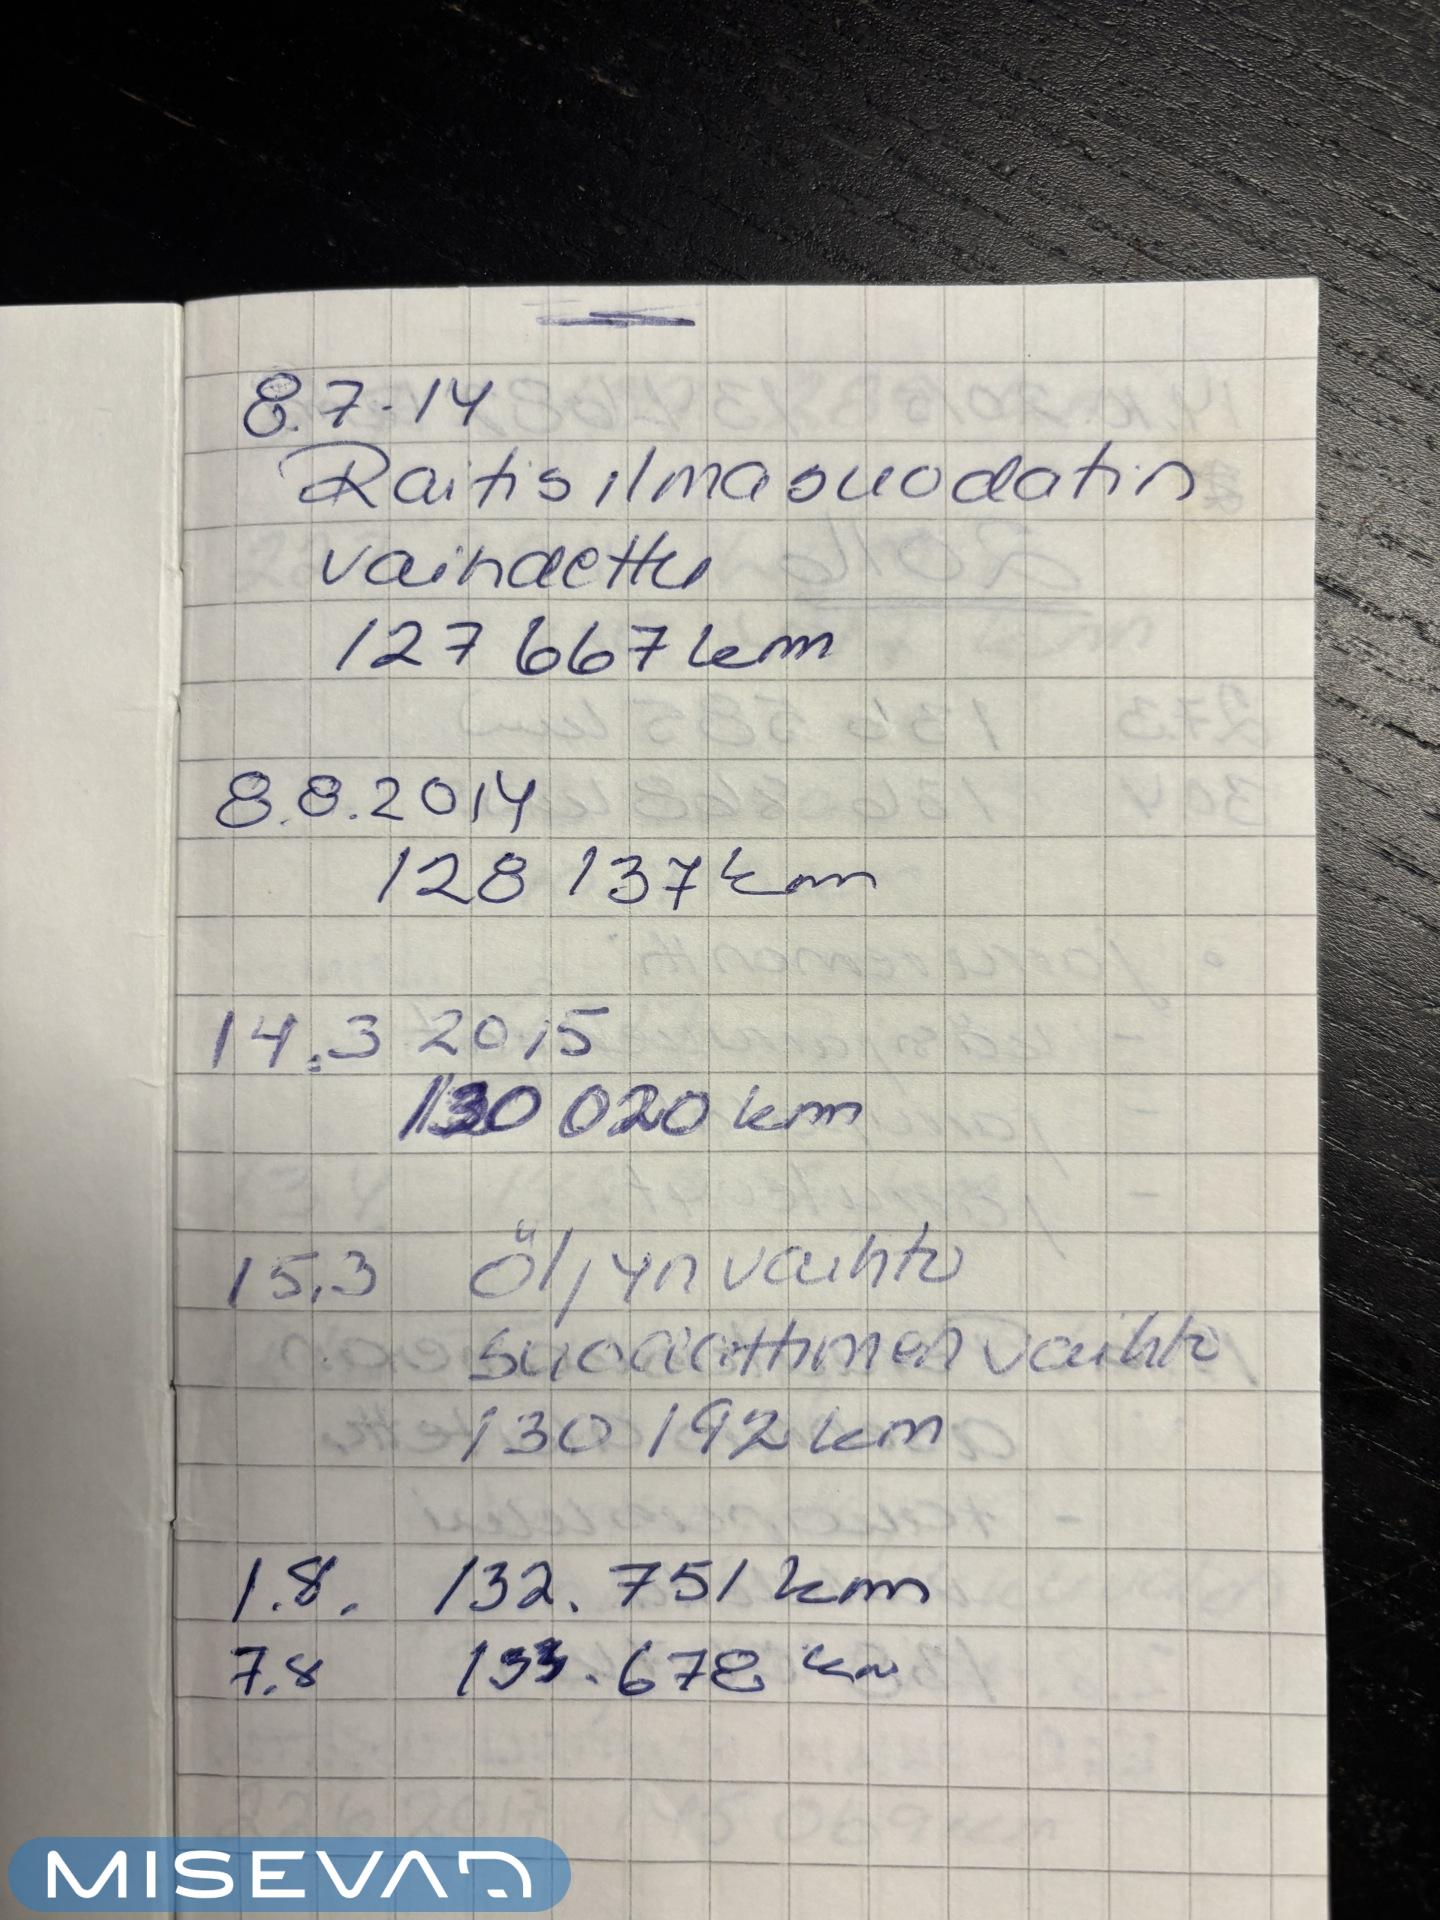 8.7-14
Raitisilmasuodatin
vaihdettu
127 667 km
8.8.2014
128 137 km
14.3 2015
130 020 km
15.3 Öljyn vaihto
suodattimen vaihto
130 192 km
1.8. 132.751 km
7.8 133.678 km
MISEVAD